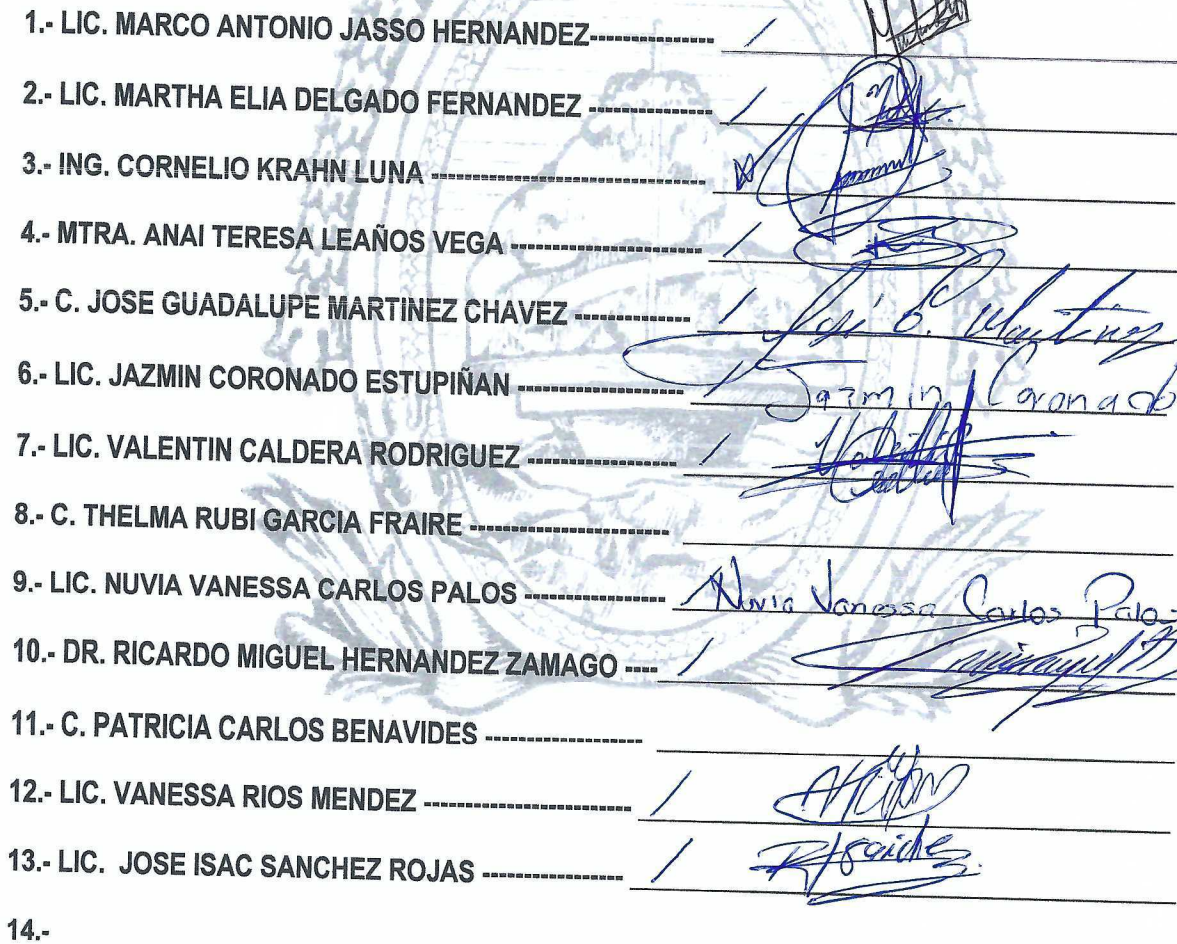 1.- LIC. MARCO ANTONIO JASSO HERNANDEZ--------------- /
2.- LIC. MARTHA ELIA DELGADO FERNANDEZ ------------ /
3.- ING. CORNELIO KRAHN LUNA -----------------------------------
4.- MTRA. ANAI TERESA LEAÑOS VEGA ------------------------ /
5.- C. JOSE GUADALUPE MARTINEZ CHAVEZ -------------- / José G. Martínez
6.- LIC. JAZMIN CORONADO ESTUPIÑAN --------------------- / Jazmin Coronado
7.- LIC. VALENTIN CALDERA RODRIGUEZ ------------------- /
8.- C. THELMA RUBI GARCIA FRAIRE -------------------------
9.- LIC. NUVIA VANESSA CARLOS PALOS ------------------ / Nuvia Vanessa Carlos Palos
10.- DR. RICARDO MIGUEL HERNANDEZ ZAMAGO ---- /
11.- C. PATRICIA CARLOS BENAVIDES --------------------
12.- LIC. VANESSA RIOS MENDEZ -------------------------- /
13.- LIC. JOSE ISAC SANCHEZ ROJAS ------------------ /
14.-